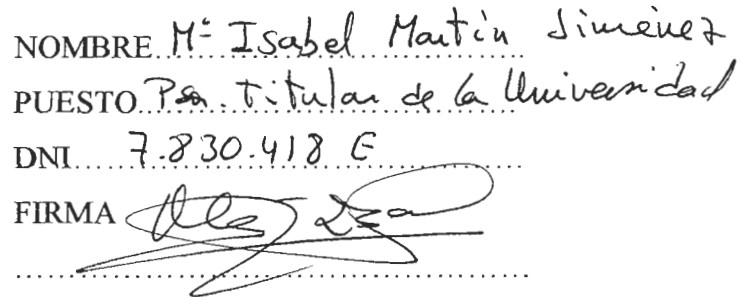 NOMBRE Mª Isabel Martín Jiménez
PUESTO Psa. Titular de la Universidad
DNI 7.830.418 E
FIRMA